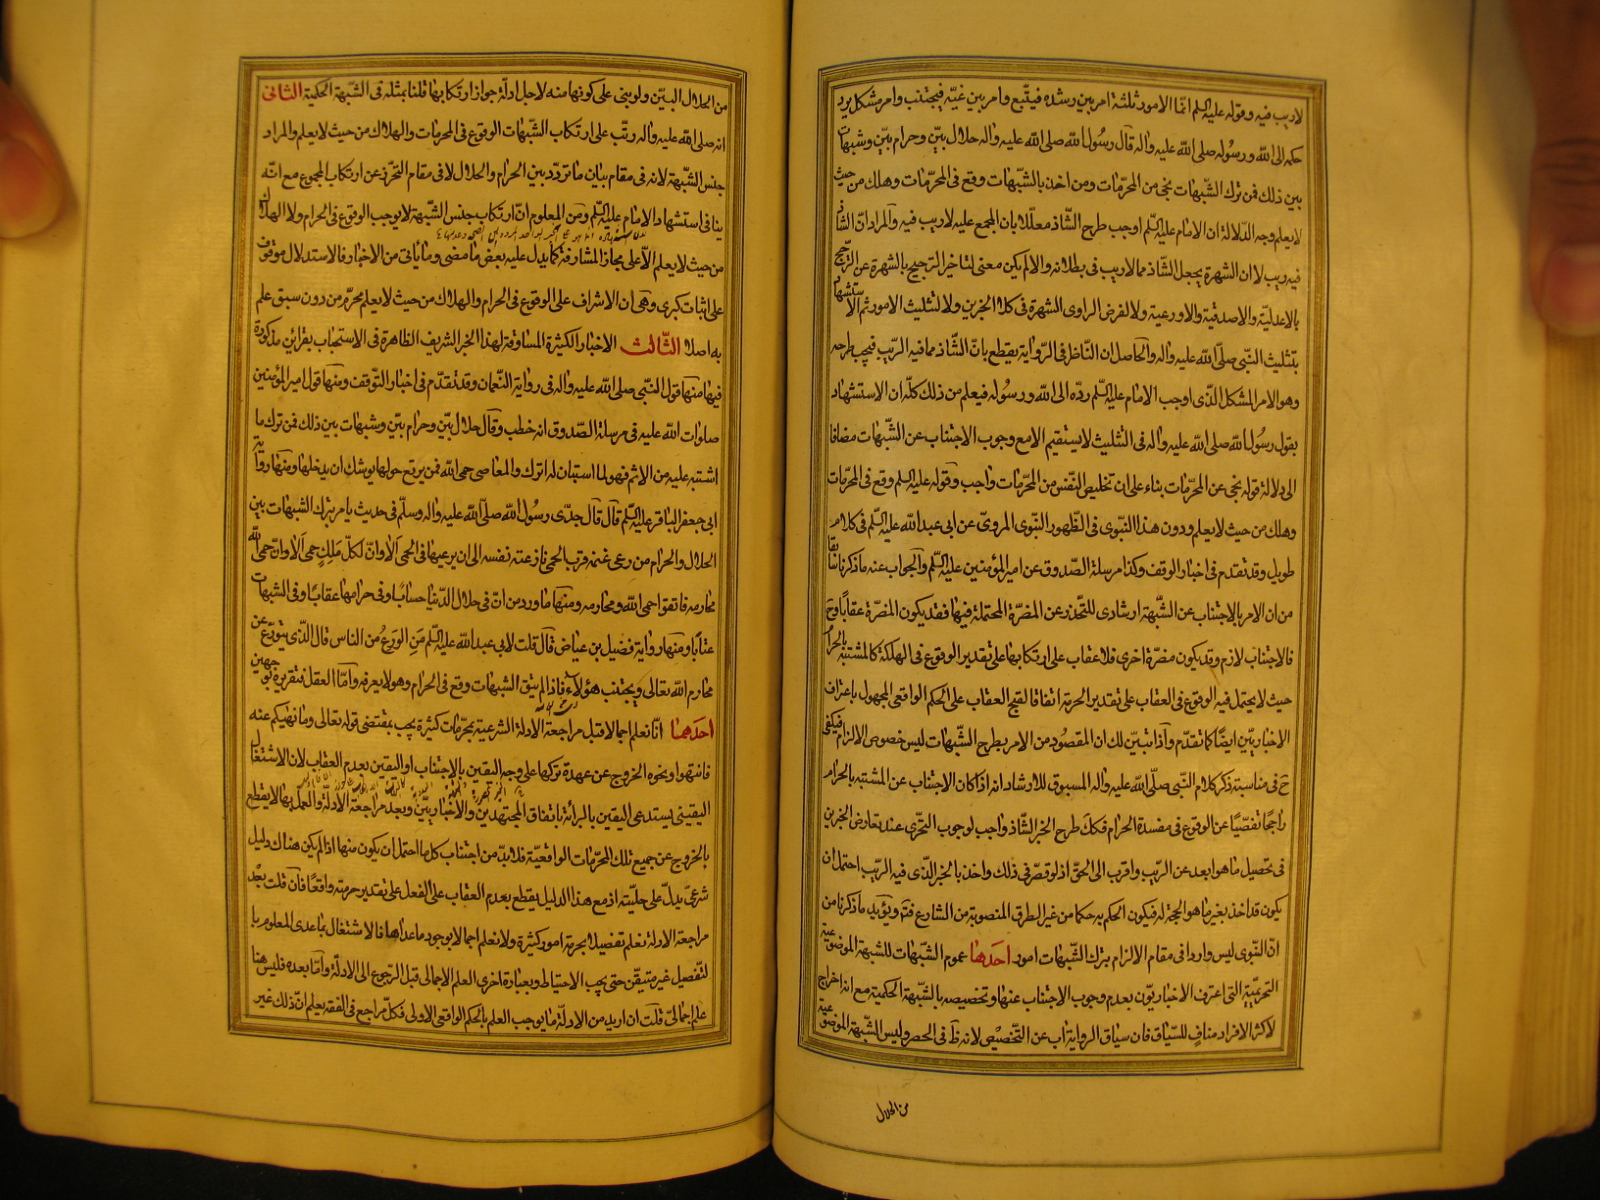 لاريب فيه وقوله عليه السلم انما الامور ثلثة امر بين رشده فيتبع وامر بين غيه فيجتنب وامر مشكل يرد
حكمه الى الله ورسوله صلى الله عليه واله قال رسول الله صلى الله عليه واله حلال بيّن وحرام بيّن وشبهات
بين ذلك فمن ترك الشبهات نجى من المحرمات ومن اخذ بالشبهات وقع فى المحرمات وهلك من حيث
لا يعلم وجه الدلالة ان الامام عليه السلم اوجب طرح الشاذ معللا بان المجمع عليه لاريب فيه والمراد ان الشاذ
فيه ريب لا ان الشهرة يجعل الشاذ مما لاريب فى بطلانه والا لم يكن معنى لتاخر الترجيح بالشهرة عن الترجيح
بالاعدلية والاصدقية والاورعية ولا لفرض الراوى الشهرة فى كلا الخبرين ولا لتثليث الامور ثم الاستشهاد
بتثليث النبى صلى الله عليه واله والحاصل ان الناظر فى الرواية يقطع بان الشاذ مما فيه الريب فيجب طرحه
وهو الامر المشكل الذى اوجب الامام عليه السلم رده الى الله ورسوله فيعلم من ذلك كله ان الاستشهاد
بقول رسول الله صلى الله عليه واله فى التثليث لا يستقيم الا مع وجوب الاجتناب عن الشبهات مضافا
الى دلالة قوله نجى عن المحرمات بناء على ان تخليص النفس من المحرمات واجب وقوله عليه السلم وقع فى المحرمات
وهلك من حيث لا يعلم ودون هذا النبوى فى الظهور النبوى المروى عن ابى عبد الله عليه السلم فى كلام
طويل وقد تقدم فى اخبار الوقف وكذا مرسلة الصدوق عن امير المؤمنين عليه السلم والجواب عنه ما ذكرنا سابقا
من ان الامر بالاجتناب عن الشبهة ارشادى للتحذر عن المضرة المحتملة فيها فقد يكون المضرة عقابا وح
فالاجتناب لازم وقد يكون مضرة اخرى فلا عقاب على ارتكابها على تقدير الوقوع فى الهلكة كالمشتبه بالحرام
حيث لا يحتمل فيه الوقوع فى العقاب على تقدير الحرمة اتفاقا لقبح العقاب على الحكم الواقعى المجهول باعتراف
الاخباريين ايضا كما تقدم واذا تبين لك ان المقصود من الامر بطرح الشبهات ليس خصوص الالزام فيكفى
ح فى مناسبة ذكر كلام النبى صلى الله عليه واله المسبوق للارشاد انه اذا كان الاجتناب عن المشتبه بالحرام
راجحا تفصيا عن الوقوع فى مفسدة الحرام فكك طرح الخبر الشاذ واجب لوجوب التحرى عند تعارض الخبرين
فى تحصيل ما هو ابعد عن الريب واقرب الى الحق اذ لو قصر فى ذلك واخذ بالخبر الذى فيه الريب احتمل ان
يكون قد اخذ بغير ما هو الحجة له فيكون الحكم به حكما من غير الطرق المنصوبة من الشارع فتم ويؤيد ما ذكرنا من
ان النبوى ليس واردا فى مقام الالزام بترك الشبهات امور احدها عموم الشبهات للشبهة الموضوعية
التحريمية التى اعترف الاخباريون بعدم وجوب الاجتناب عنها وتخصيصه بالشبهة الحكمية مع انه اخراج
لاكثر الافراد مناف للسياق فان سياق الرواية اب عن التخصيص لانه ظ فى الحصر وليس الشبهة الموضوعية
من الحلال
من الحلال البين ولو بنى على كونها منه لاجل ادلة جواز ارتكابها قلنا بمثله فى الشبهة الحكمية الثانى
انه صلى الله عليه واله رتب على ارتكاب الشبهات الوقوع فى المحرمات والهلاك من حيث لا يعلم والمراد
جنس الشبهة لانه فى مقام بيان ما تردد بين الحرام والحلال لا فى مقام التحرز عن ارتكاب المجموع مع انه
ينافى استشهاد الامام عليه السلم ومن المعلوم ان ارتكاب جنس الشبهة لا يوجب الوقوع فى الحرام ولا الهلاك
من حيث لا يعلم الا على مجاز المشارفة كما يدل عليه بعض ما مضى وما يأتى من الاخبار فالاستدلال موقوف
على اثبات كبرى وهى ان الاشراف على الوقوع فى الحرام والهلاك من حيث لا يعلم محرم من دون سبق علم
به اصلا الثالث الاخبار الكثيرة المساوقة لهذا الخبر الشريف الظاهرة فى الاستحباب بقرائن مذكورة
فيها منها قول النبى صلى الله عليه واله فى رواية النعمان وقد تقدم فى اخبار التوقف ومنها قول امير المؤمنين
صلوات الله عليه فى مرسلة الصدوق انه خطب وقال حلال بين وحرام بين وشبهات بين ذلك فمن ترك ما
اشتبه عليه من الاثم فهو لما استبان له اترك والمعاصى حمى الله فمن يرتع حولها يوشك ان يدخلها ومنها رواية
ابى جعفر الباقر عليه السلم قال قال جدى رسول الله صلى الله عليه واله وسلم فى حديث يامر بترك الشبهات بين
الحلال والحرام من رعى غنمه قرب الحمى نازعته نفسه الى ان يرعيها فى الحمى الا وان لكل ملك حمى الا وان حمى الله
محارمه فاتقوا حمى الله ومحارمه ومنها ما ورد من ان فى حلال الدنيا حسابا وفى حرامها عقابا وفى الشبهات
عتابا ومنها رواية فضيل بن عياض قال قلت لابى عبد الله عليه السلم من الورع من الناس قال الذى يتورع عن
محارم الله تعالى ويجتنب هؤلاء فاذا لم يتق الشبهات وقع فى الحرام وهو لا يعرفه واما العقل فتقريره بوجهين
احدهما انا نعلم اجمالا قبل مراجعة الادلة الشرعية بمحرمات كثيرة يجب بمقتضى قوله تعالى وما نهيكم عنه
فانتهوا ونحوه الخروج عن عهدة تركها على وجه اليقين بالاجتناب او اليقين بعدم العقاب لان الاشتغال
اليقينى يستدعى اليقين بالبرائة باتفاق المجتهدين والاخباريين وبعد مراجعة الادلة والعمل بها لا يقطع
بالخروج عن جميع تلك المحرمات الواقعية فلابد من اجتناب كل ما احتمل ان يكون منها اذا لم يكن هناك دليل
شرعى يدل على حليته اذ مع هذا الدليل يقطع بعدم العقاب على الفعل على تقدير حرمته واقعا فان قلت بعد
مراجعة الادلة نعلم تفصيلا بحرمة امور كثيرة ولا نعلم اجمالا بوجود ما عداها فالاشتغال بما عدى المعلوم با
لتفصيل غير متيقن حتى يجب الاحتياط وبعبارة اخرى العلم الاجمالى قبل الرجوع الى الادلة واما بعده فليس هنا
علم اجمالى قلت ان اريد من الادلة ما يوجب العلم بالحكم الواقعى الاولى فكل مراجع فى الفقه يعلم ان ذلك غير